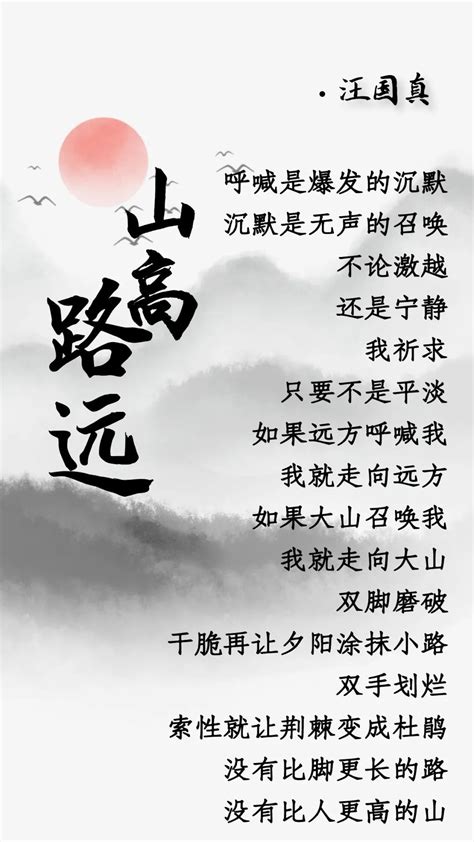 山高路远
·汪国真
呼喊是爆发的沉默
沉默是无声的召唤
不论激越
还是宁静
我祈求
只要不是平淡
如果远方呼喊我
我就走向远方
如果大山召唤我
我就走向大山
双脚磨破
干脆再让夕阳涂抹小路
双手划烂
索性就让荆棘变成杜鹃
没有比脚更长的路
没有比人更高的山